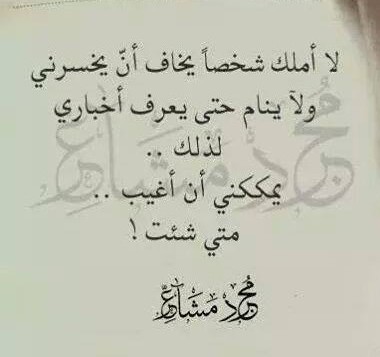 لا أملك شخصاً يخاف أنّ يخسرني
ولآ ينام حتى يعرف أخباري
لذلك ..
يمككني أن أغيب ..
متي شئت !
مجرد مشاعر
مجرد مشاعر